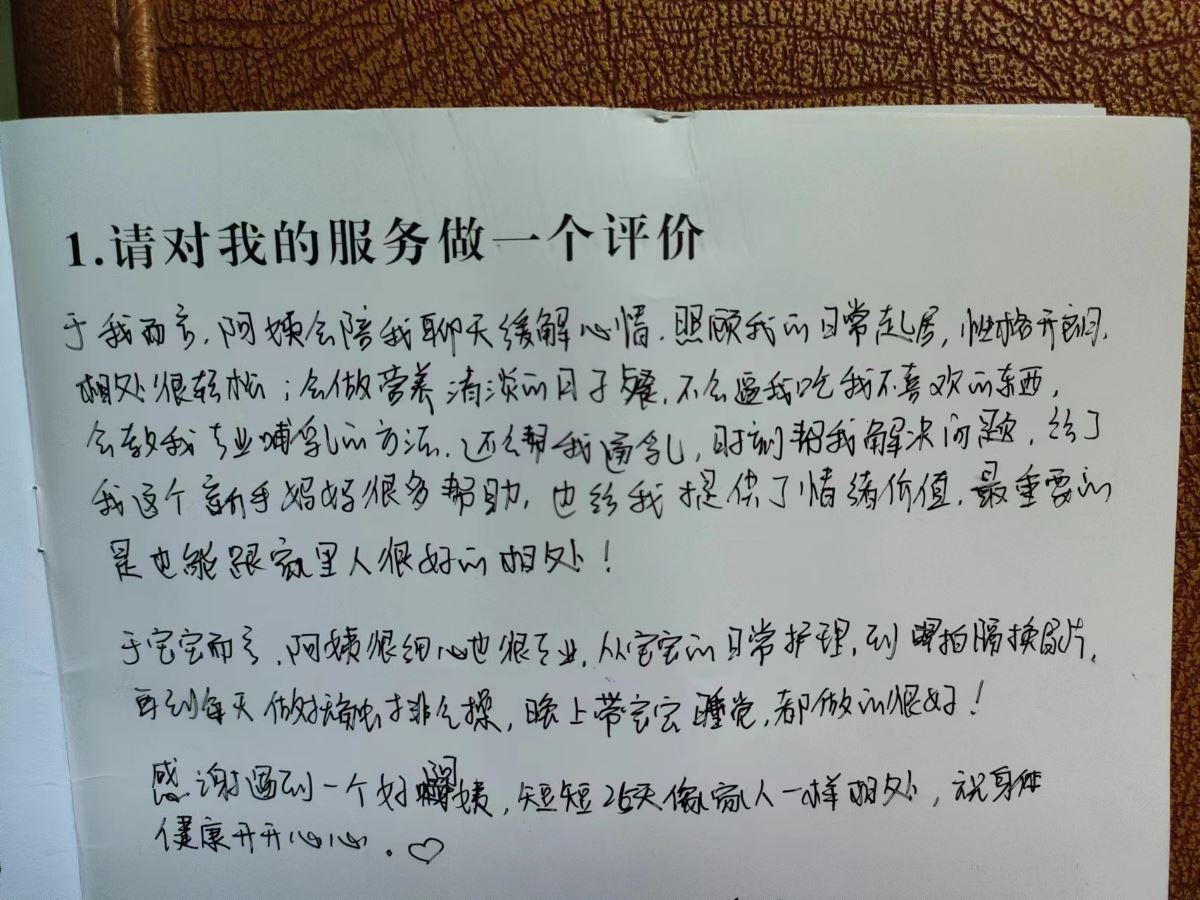 1.请对我的服务做一个评价
于我而言,阿姨会陪我聊天缓解心情,照顾我的日常起居,性格开朗,
相处很轻松;会做营养清淡的月子餐,不会逼我吃我不喜欢的东西,
会教我专业哺乳的方法,还会帮我通乳,时刻帮我解决问题,给了
我这个新手妈妈很多帮助,也给我提供了情绪价值,最重要的
是也能跟家里人很好的相处!
于宝宝而言,阿姨很细心也很专业,从宝宝的日常护理,到拍隔换尿片,
再到每天做抚触排气操,晚上带宝宝睡觉,都做的很好!
感谢遇到一个好阿姨,短短26天像家人一样相处,祝身体
健康开开心心。♡